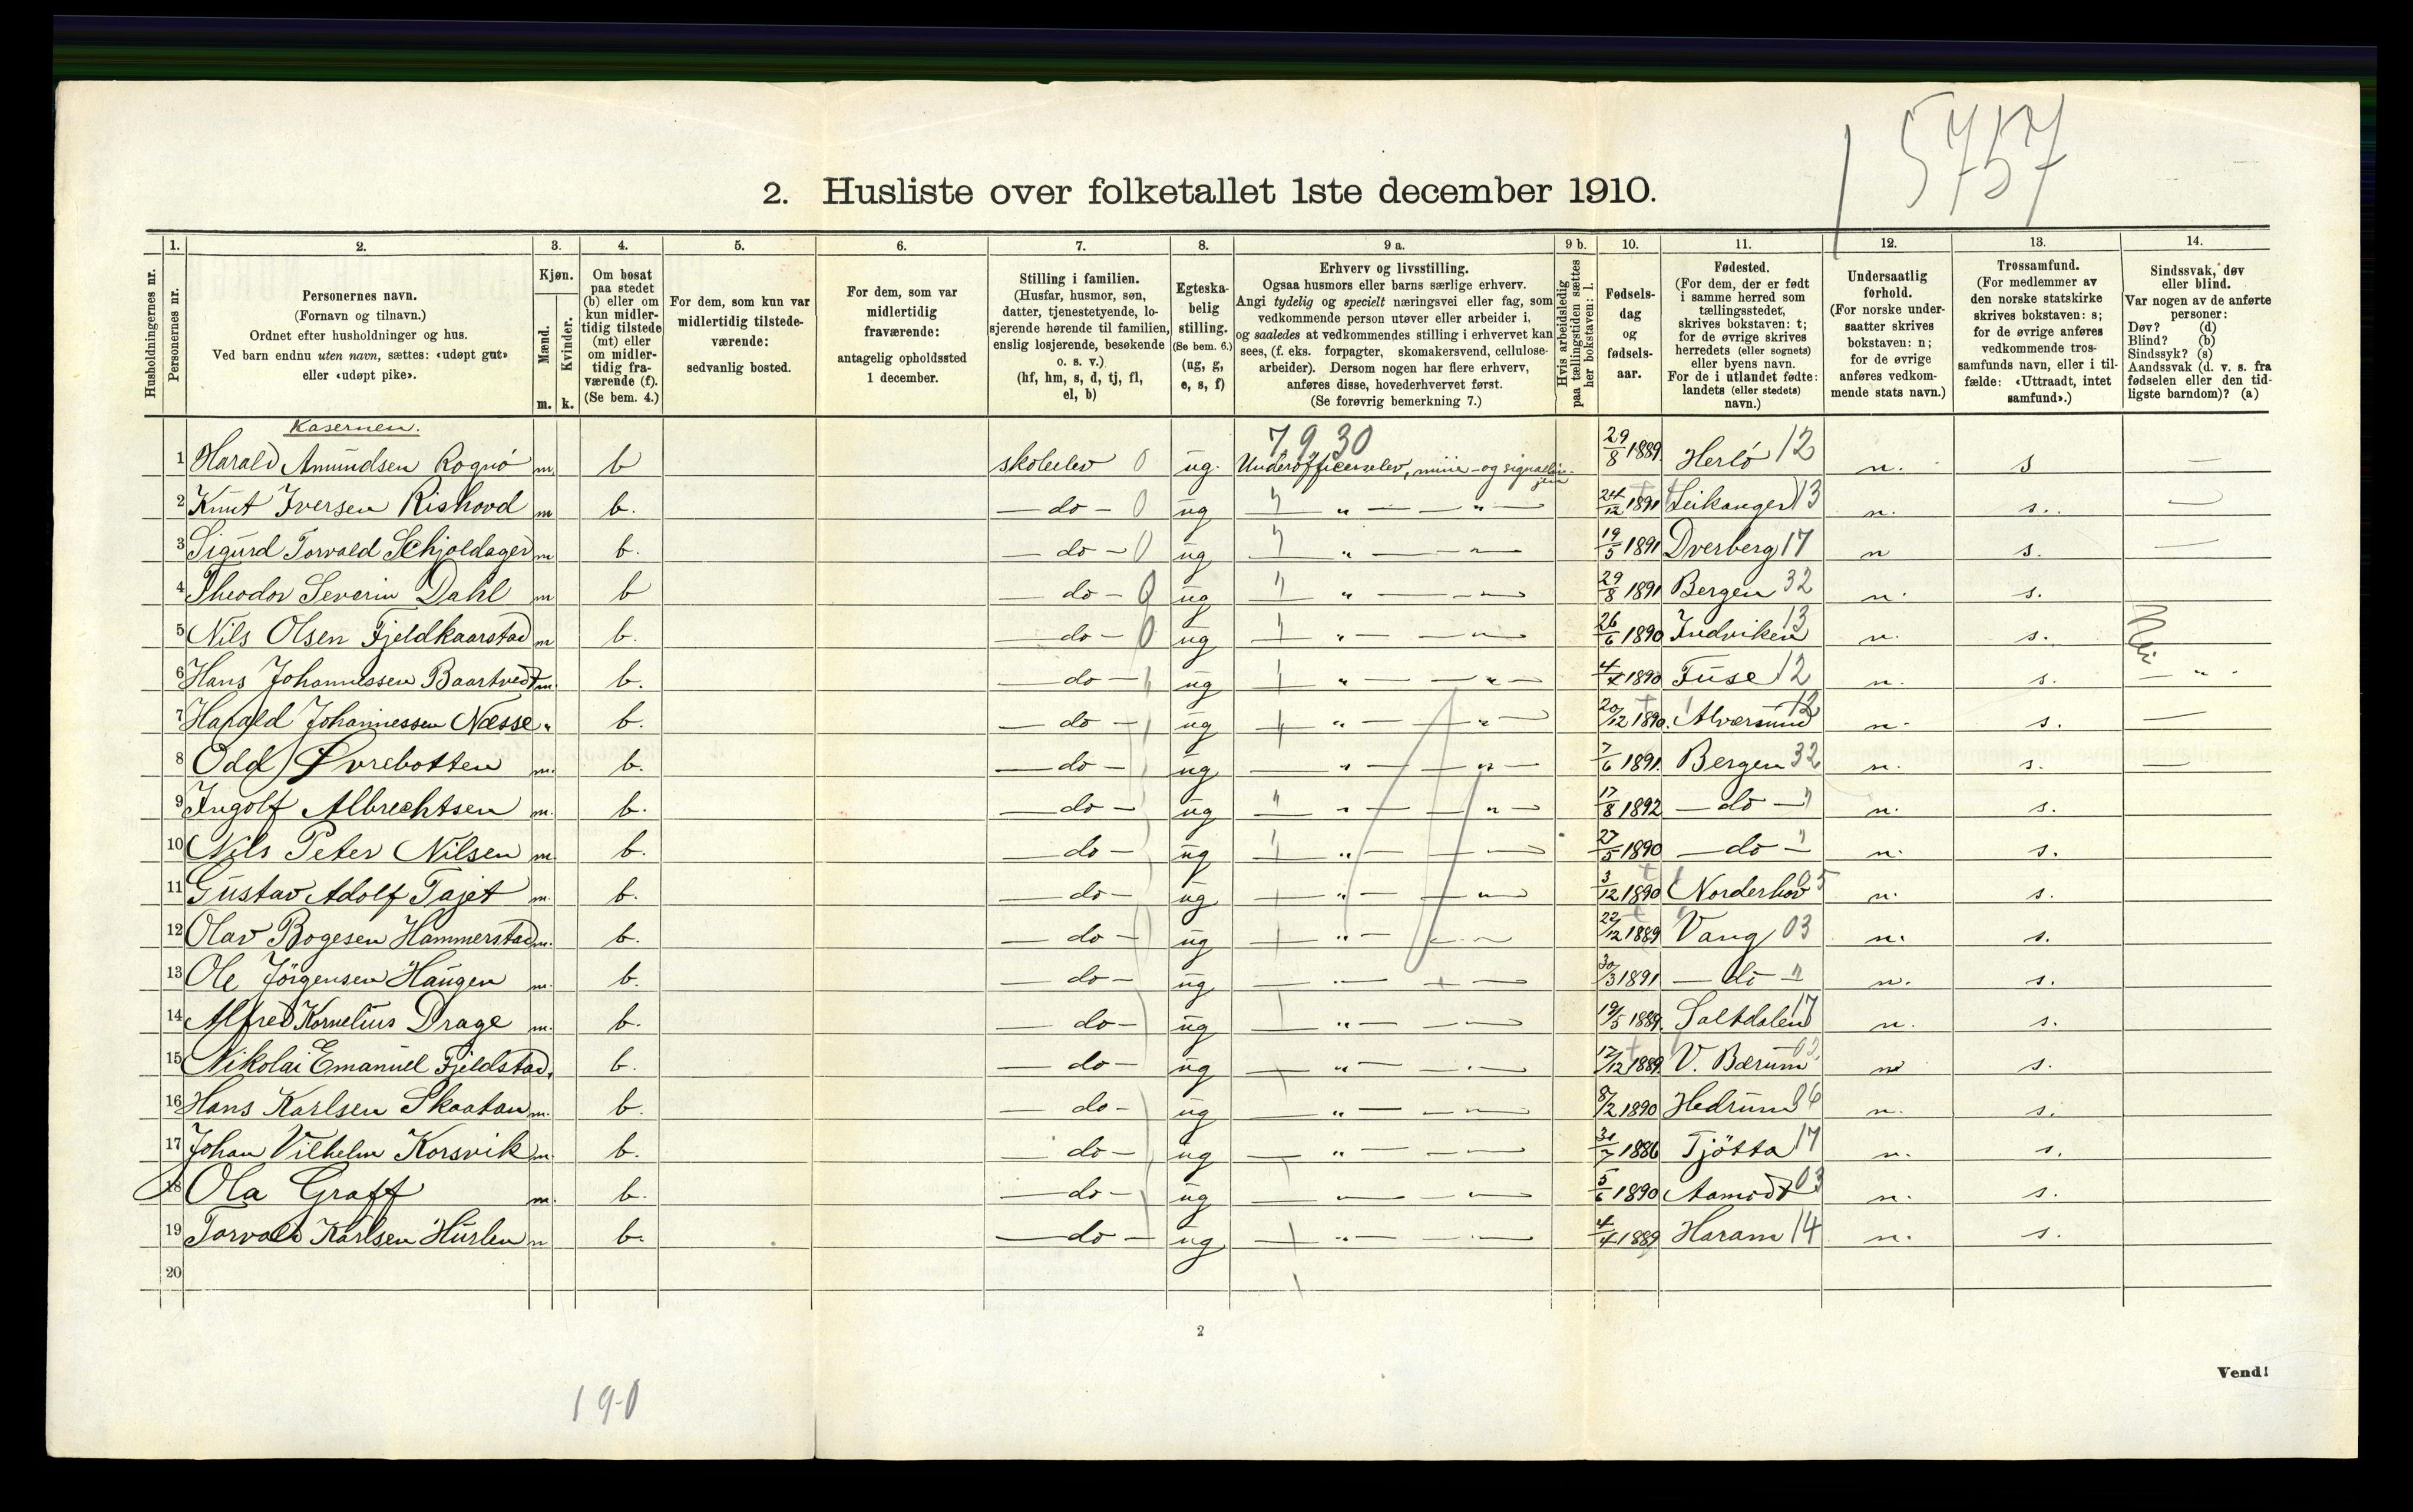 1 5757
2. Husliste over folketallet 1ste december 1910.
Husholdningernes nr.
1. Personernes nr.
2. Personernes navn. (Fornavn og tilnavn.) Ordnet efter husholdninger og hus. Ved barn endnu uten navn, sættes: «udøpt gut» eller «udøpt pike».
3. Kjøn. Mænd. m. Kvinder. k.
4. Om bosat paa stedet (b) eller om kun midlertidig tilstede (mt) eller om midlertidig fraværende (f). (Se bem. 4.)
5. For dem, som kun var midlertidig tilstedeværende: sedvanlig bosted.
6. For dem, som var midlertidig fraværende: antagelig opholdssted 1 december.
7. Stilling i familien. (Husfar, husmor, søn, datter, tjenestetyende, losjerende hørende til familien, enslig losjerende, besøkende o. s. v.) (hf, hm, s, d, tj, fl, el, b)
8. Egteskabelig stilling. (Se bem. 6.) (ug, g, e, s, f)
9 a. Erhverv og livsstilling. Ogsaa husmors eller barns særlige erhverv. Angi tydelig og specielt næringsvei eller fag, som vedkommende person utøver eller arbeider i, og saaledes at vedkommendes stilling i erhvervet kan sees, (f. eks. forpagter, skomakersvend, cellulosearbeider). Dersom nogen har flere erhverv, anføres disse, hovederhvervet først. (Se forøvrig bemerkning 7.)
9 b. Hvis arbeidsledig paa tællingstiden sættes her bokstaven: l.
10. Fødselsdag og fødselsaar.
11. Fødested. (For dem, der er født i samme herred som tællingsstedet, skrives bokstaven: t; for de øvrige skrives herredets (eller sognets) eller byens navn. For de i utlandet fødte: landets (eller stedets) navn.)
12. Undersaatlig forhold. (For norske undersaatter skrives bokstaven: n; for de øvrige anføres vedkommende stats navn.)
13. Trossamfund. (For medlemmer av den norske statskirke skrives bokstaven: s; for de øvrige anføres vedkommende trossamfunds navn, eller i tilfælde: «Uttraadt, intet samfund».)
14. Sindssvak, døv eller blind. Var nogen av de anførte personer: Døv? (d) Blind? (b) Sindssyk? (s) Aandssvak (d. v. s. fra fødselen eller den tidligste barndom)? (a)
Kasernen. 7930
1 Harald Amundsen Rognö m. b skoleelev 0 ug. Underofficerselev, mine- og 29/8 1889 Herlö 12 n. s —
2 Knut Iversen Rishovd m b. — do — 0 ug " — " — 24/12 1891 Leikanger 13 n. s. —
3 Sigurd Torvald Schjoldager m b. — do — 0 ug " — " — 19/5 1891 Dverberg 17 n s. —
4 Theodor Severin Dahl m b — do — 0 ug " — " — 29/8 1891 Bergen 32 n. s.
5 Nils Olsen Fjeldkaarstad m b. — do — 0 ug " — " — 26/6 1890 Indviken 13 n. s. Nei
6 Hans Johannessen Baartvedt m. b. — do — ug " — " — 1890 Fuse 12 n. s. — " —
7 Harald Johannessen Næsse " b. — do — ug " — " — 20/12 1890. Alversund 12 n. s. —
8 Odd Øvrebotten m. b. — do — ug " — " — 7/6 1891. Bergen 32 n. s. —
9 Ingolf Albrechtsen m. b. — do — ug " — " — 17/8 1892 — do — " n. s.
10 Nils Peter Nilsen m. b. — do — ug " — " — 27/5 1890 — do — " n. s.
11 Gustav Adolf Tajet m. b. — do — ug " — " — 3/12 1890 Norderhov 05 n. s.
12 Olav Bogesen Hammerstad m. b. — do — ug " — " — 22/12 1889 Vang 03 n. s.
13 Ole Jörgensen Haugen m. b. — do — ug " — " — 30/3 1891 — do — " n. s.
14 Alfred Kornelius Drage m. b. — do — ug " — " — 19/5 1889. Saltdalen 17 n. s.
15 Nikolai Emanuel Fjeldstad. b. — do — ug " — " — 17/12 1889. V. Bærum 02 n s.
16 Hans Karlsen Skaatan m. b. — do — ug " — " — 8/2 1890 Hedrum 06 n. s.
17 Johan Vilhelm Korsvik m b. — do — ug " — " — 1886 Tjötta 17 n. s.
18 Ola Graff m. b. — do — ug " — " — 5/6 1890 Aamodt 03 n. s.
19 Torvald Karlsen Hurlen m b. — do — ug " — " — 4/4 1889 Haram 14 n. s.
20
2
Vend!
19-0